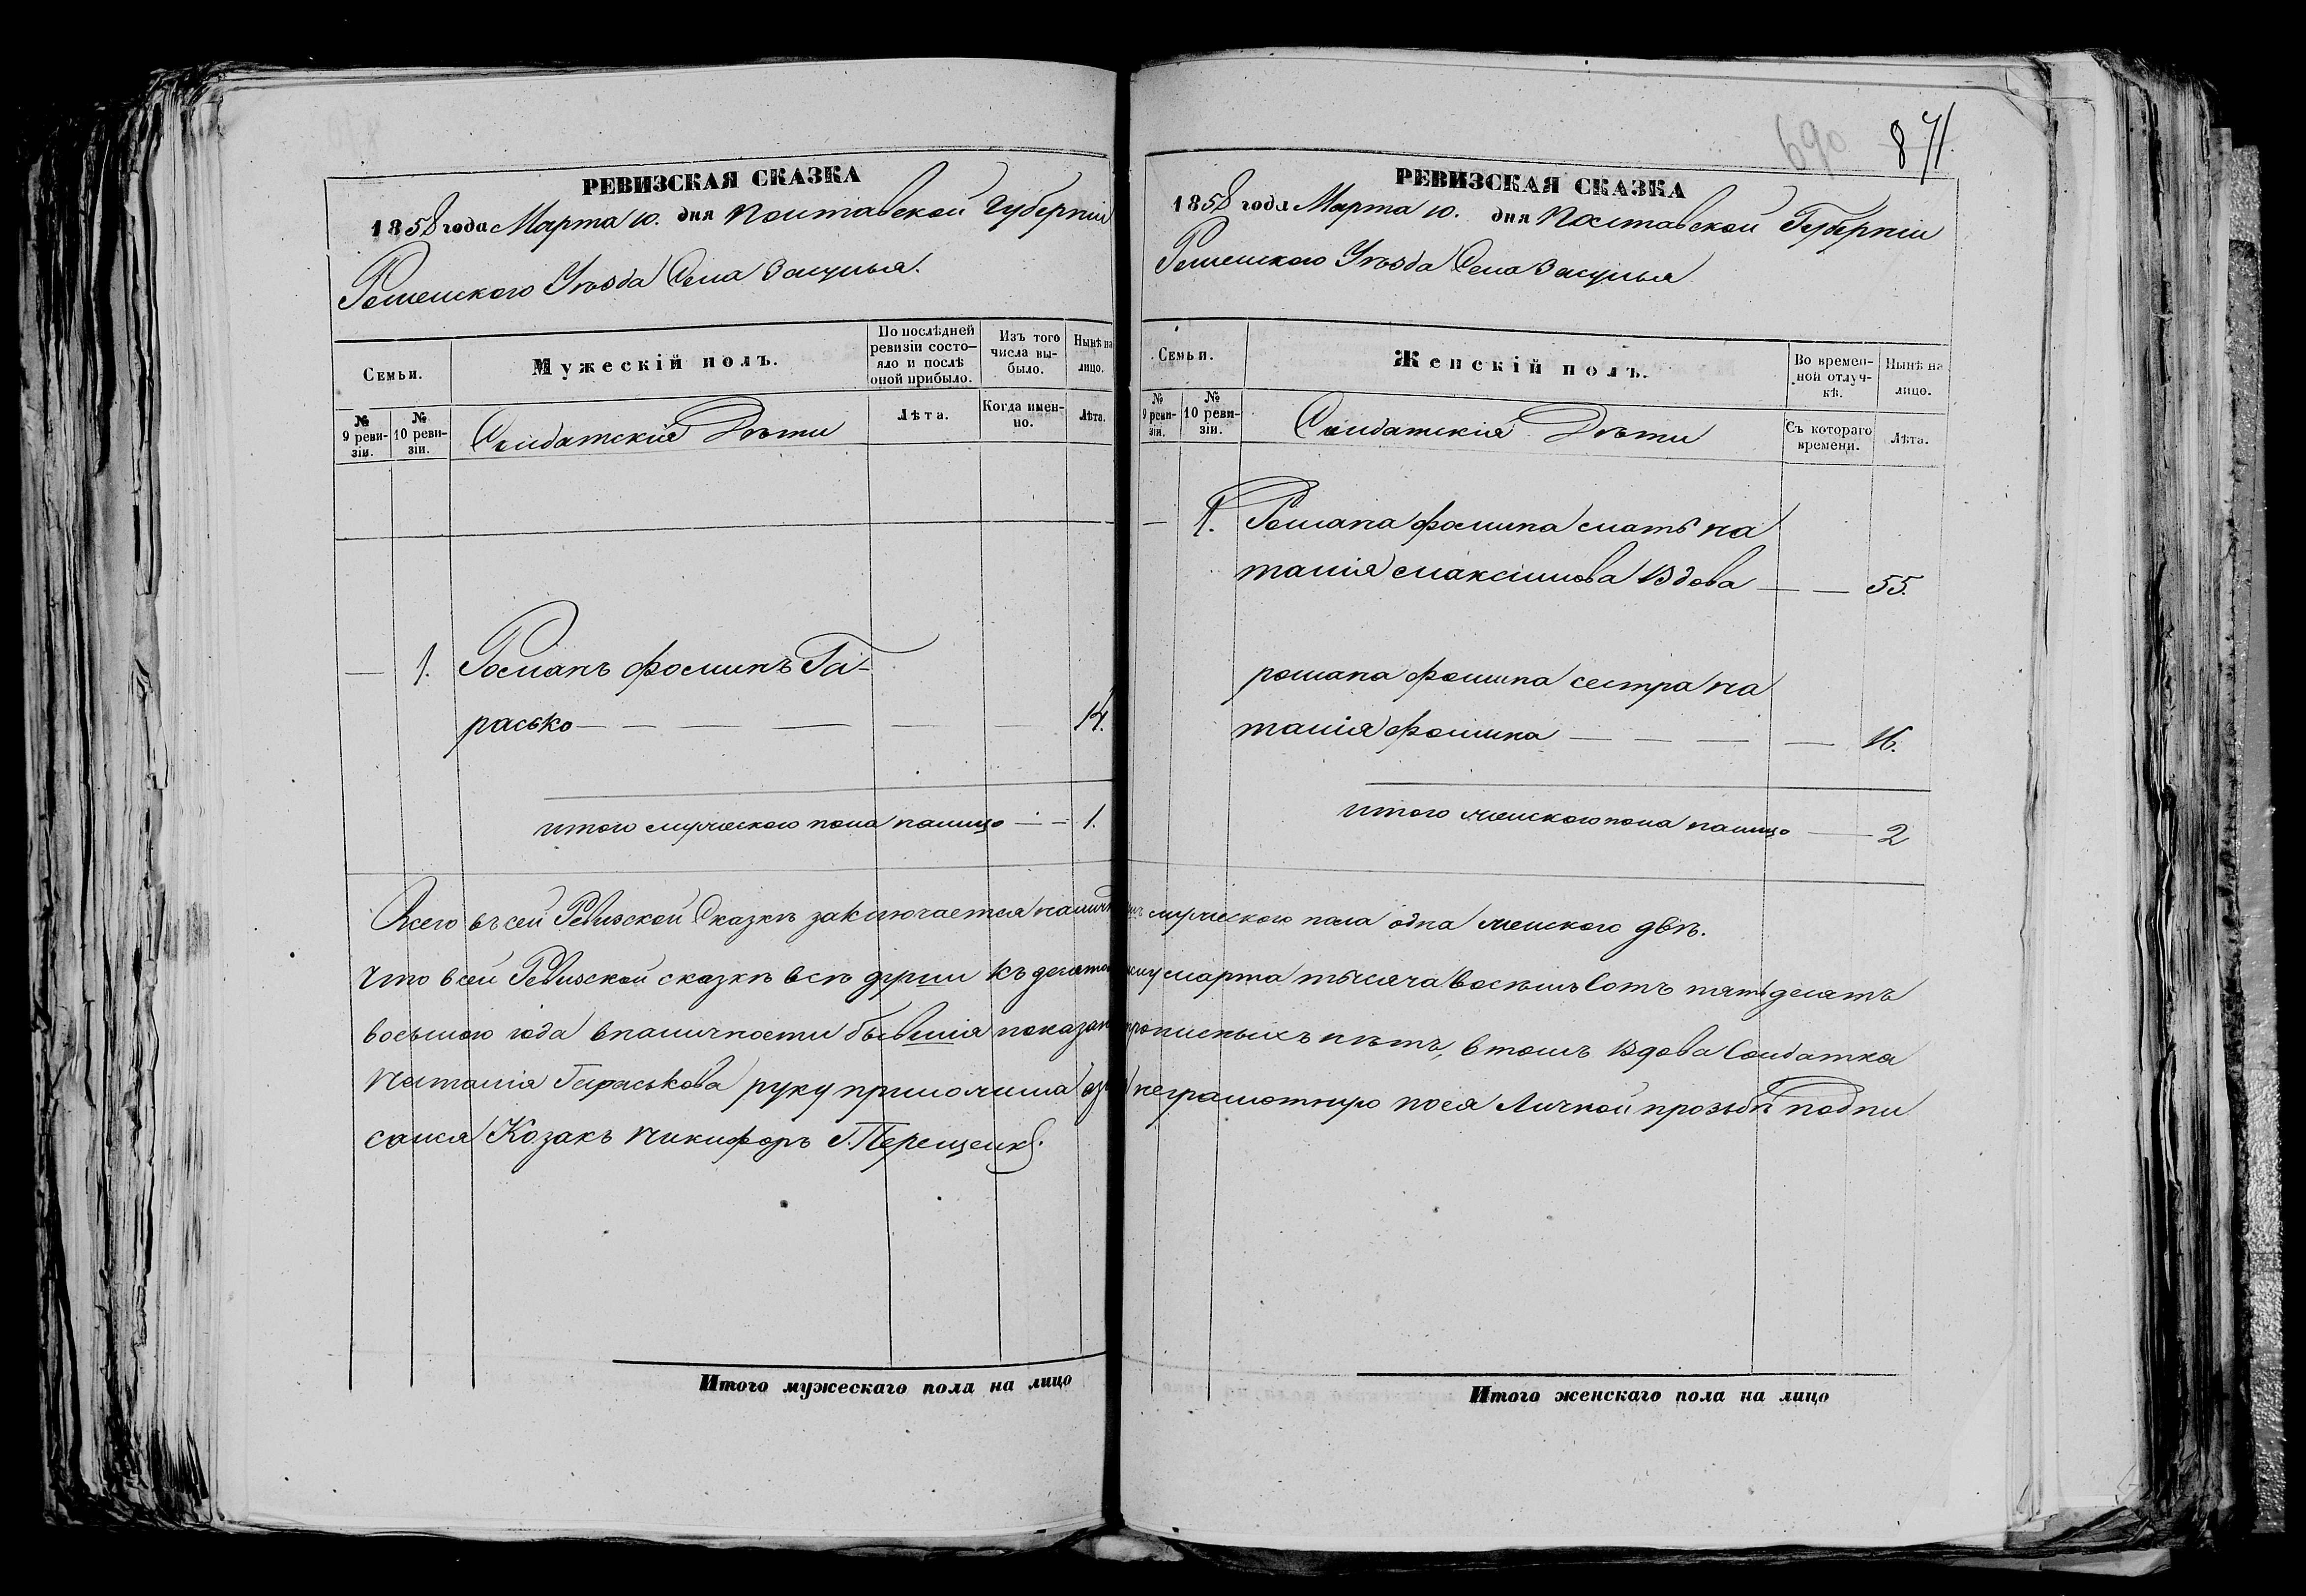 РЕВИЗСКАЯ СКАЗКА
1858 года Марта 10. дня Полтавской Губерніи
Роменского Уѣзда Села Засулья.
Семьи.
Мужескій полъ.
По послѣдней ревизіи состо-
яло и послѣ оной прибыло.
Изъ того числа вы-
было.
Нынѣ на лицо.
№ 9 реви-
зіи.
№ 10 реви-
зіи.
Солдатскія Дѣти
Лѣта.
Когда имен-
но.
Лѣта.
— 1. Романъ Фоминъ Та-
расько — — — — — — 14.
итого мужеского пола налицо — — 1.
690 871
РЕВИЗСКАЯ СКАЗКА
1858 года Марта 10. дня Полтавской Губерніи
Роменского Уѣзда Села Засулья
Семьи.
Женскій полъ.
Во времен-
ной отлуч-
кѣ.
Нынѣ на лицо.
№ 9 реви-
зіи.
№ 10 реви-
зіи.
Солдатскія Дѣти
Съ котораго времени.
Лѣта.
— 1. Романа Фомина мать На
талія Максимова Вдова — — 55.
Романа Фомина сестра На
талія Фомина — — — — — 16.
итого женского пола налицо — 2
Всего въ сей Ревизской Сказкѣ заключается мужеского пола одна женского двѣ.
Что в сей Ревизской сказкѣ всѣ души къ марта тысяча восемь Сотъ пятьдесятъ
восьмого года в наличности бывшія прописныхъ нѣтъ, в томъ Вдова Солдатка
Наталія Тараськова руку приложила неграмотную поея Личной прозьбѣ подпи
сался Козакъ Никифоръ
Итого мужескаго пола на лицо
Итого женскаго пола на лицо